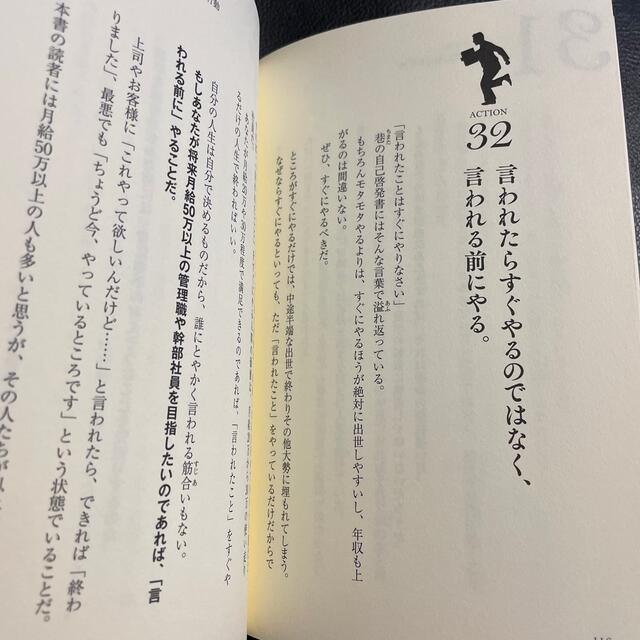 ACTION
32
言われたらすぐやるのではなく、
言われる前にやる。
「言われたことはすぐにやりなさい」
巷の自己啓発書にはそんな言葉で溢れ返っている。
もちろんモタモタやるよりは、すぐにやるほうが絶対に出世しやすいし、年収も上
がるのは間違いない。
ぜひ、すぐにやるべきだ。
ところがすぐにやるだけでは、中途半端な出世で終わりその他大勢に埋もれてしまう。
なぜならすぐにやるといっても、ただ「言われたこと」をやっているだけだからで
あなたが月給20万や30万程度で満足できるのであれば、「言われたこと」をすぐや
るだけの人生で終わればいい。
自分の人生は自分で決めるものだから、誰にとやかく言われる筋合いもない。
もしあなたが将来月給50万以上の管理職や幹部社員を目指したいのであれば、「言
われる前に」やることだ。
上司やお客様に「これやって欲しいんだけど……」と言われたら、できれば「終わ
りました」、最悪でも「ちょうど今、やっているところです」という状態でいることだ。
本書の読者には月給50万以上の人も多いと思うが、その人たちが
動
31